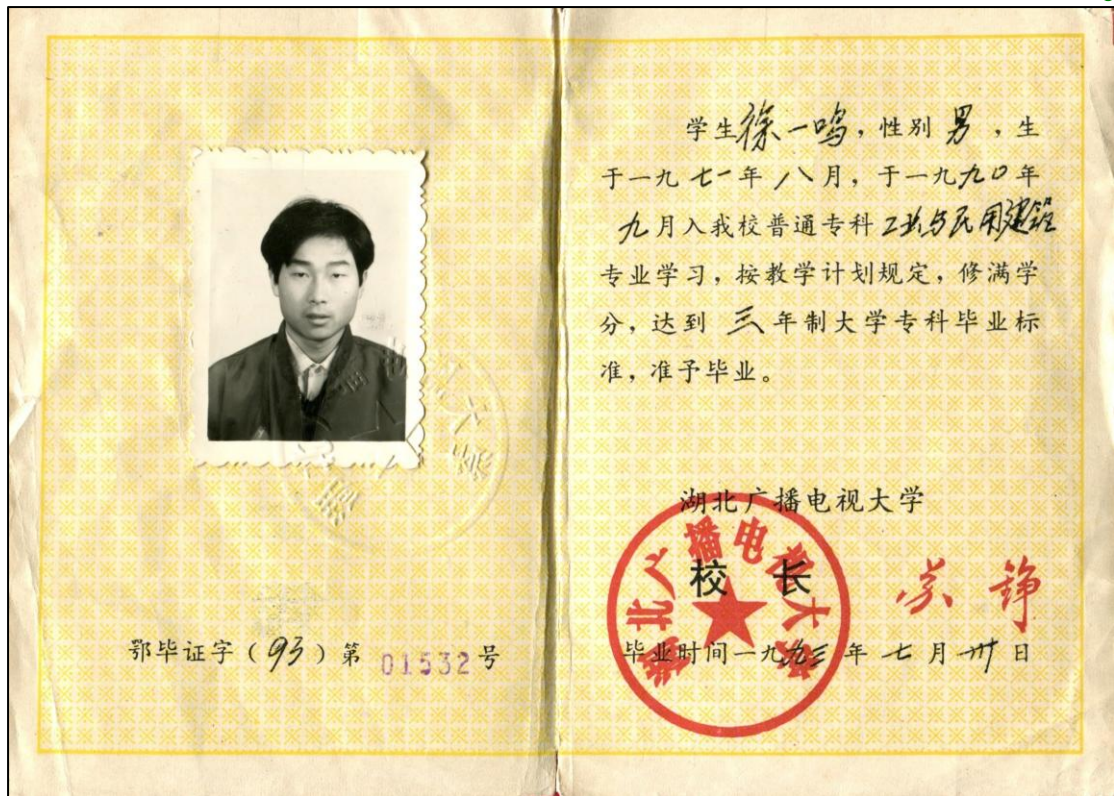 鄂毕证字（93）第 01532 号
学生徐一鸣，性别 男，生
于一九七一年八月，于一九九〇年
九月入我校普通专科工业与民用建筑
专业学习，按教学计划规定，修满学
分，达到 三年制大学专科毕业标
准，准予毕业。
湖北广播电视大学
校 长
湖北广播电视大学
毕业时间一九九三年七月卅日